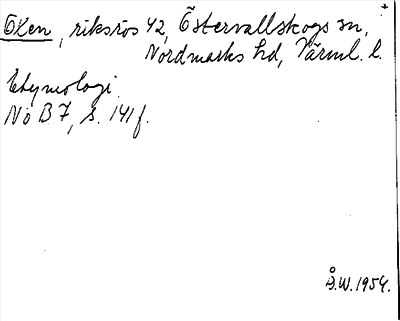 Oxen, riksrös 42, Östervallskogs sn,
Nordmarks hd, Värml. l.
Etymologi.
No B 7, s. 141 f.
Å.W. 1954.